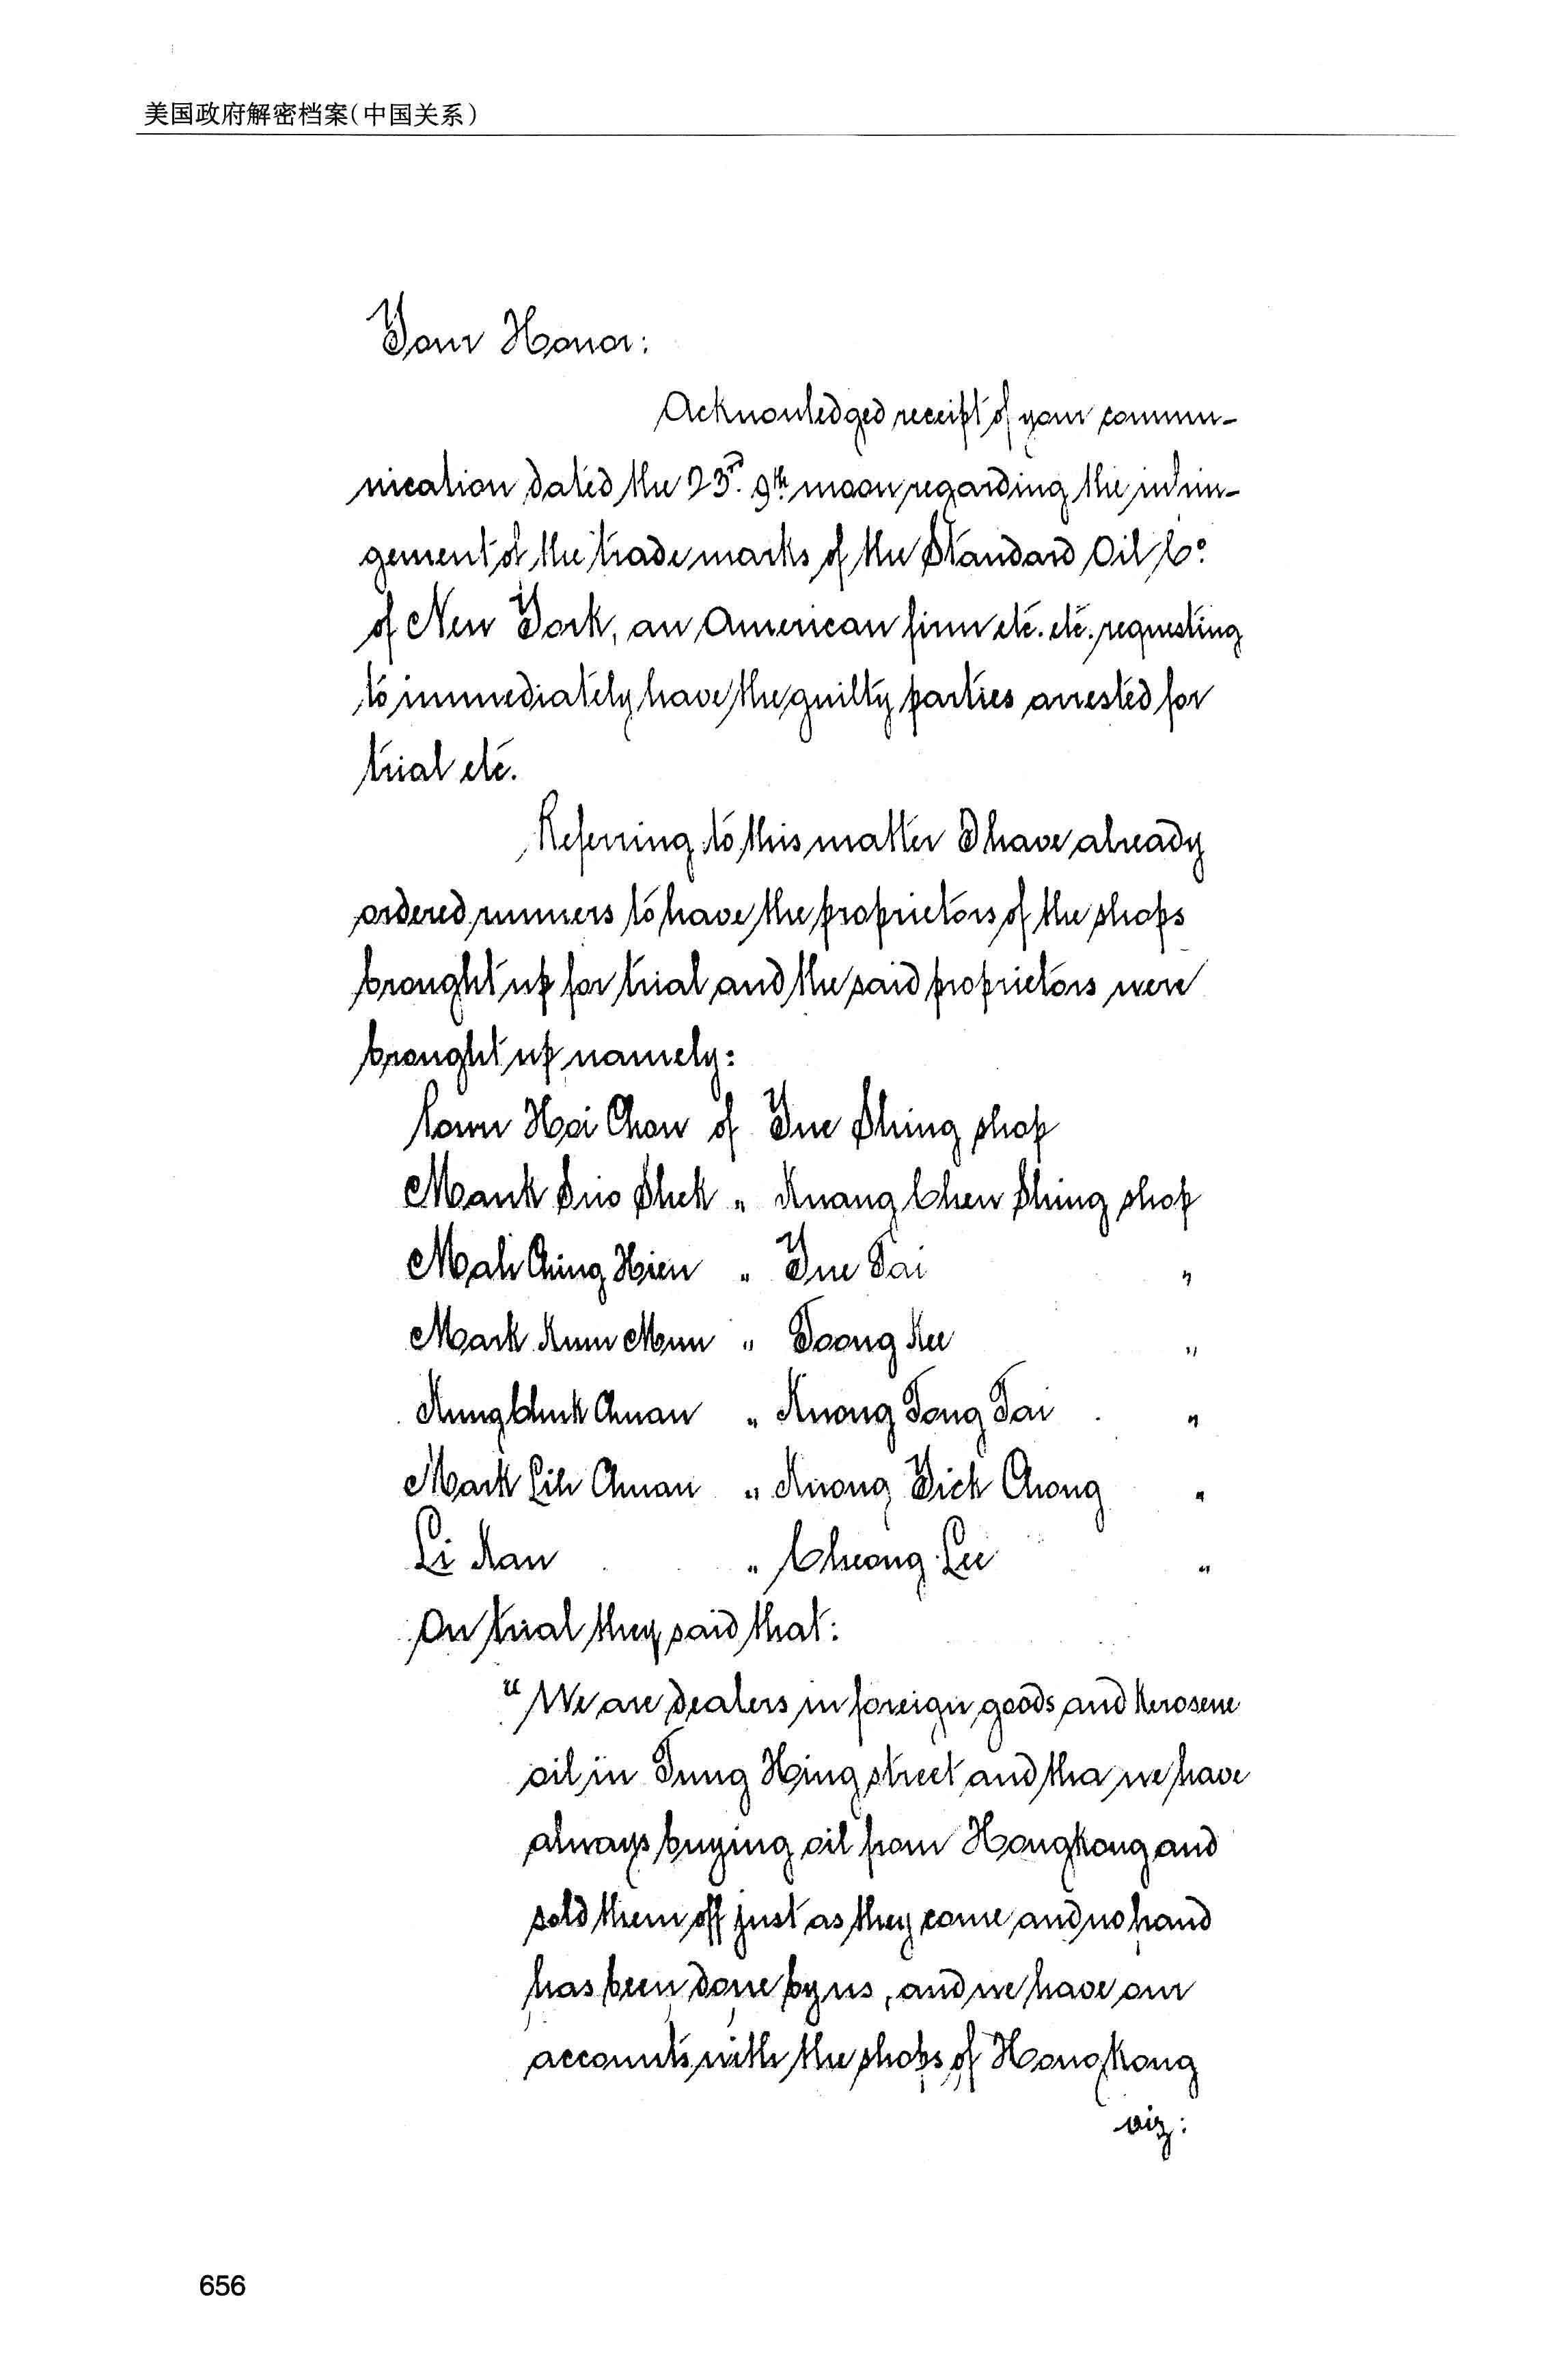 美国政府解密档案(中国关系)
Your Honor:
Acknowledged receipt of your commu-
nication dated the 23rd. 9th moon regarding the infrin-
gement of the trade marks of the Standard Oil Co.
of New York, an American firm etc. etc. requesting
to immediately have the guilty parties arrested for
trial etc.
Referring to this matter I have already
ordered runners to have the proprietors of the shops
brought up for trial and the said proprietors were
brought up namely:
Hoi Chow of Yue Shing shop
Mank Sho Shek " Kuang Chen Shing shop
Mah Ching Hien " Yue Tai "
Mark Kum Mun " Toong Kee "
Kung Chuk Chuan " Kuong Tong Tai "
Mark Lih Chuan " Kuong Yick Chong "
Li Kan " Cheong Lee "
On trial they said that:
"We are dealers in foreign goods and kerosene
oil in Tung Hing street and tha we have
always buying oil from Hongkong and
sold them off just as they come and no
has been done by us, and we have our
accounts with the shops of Hongkong
viz:
656